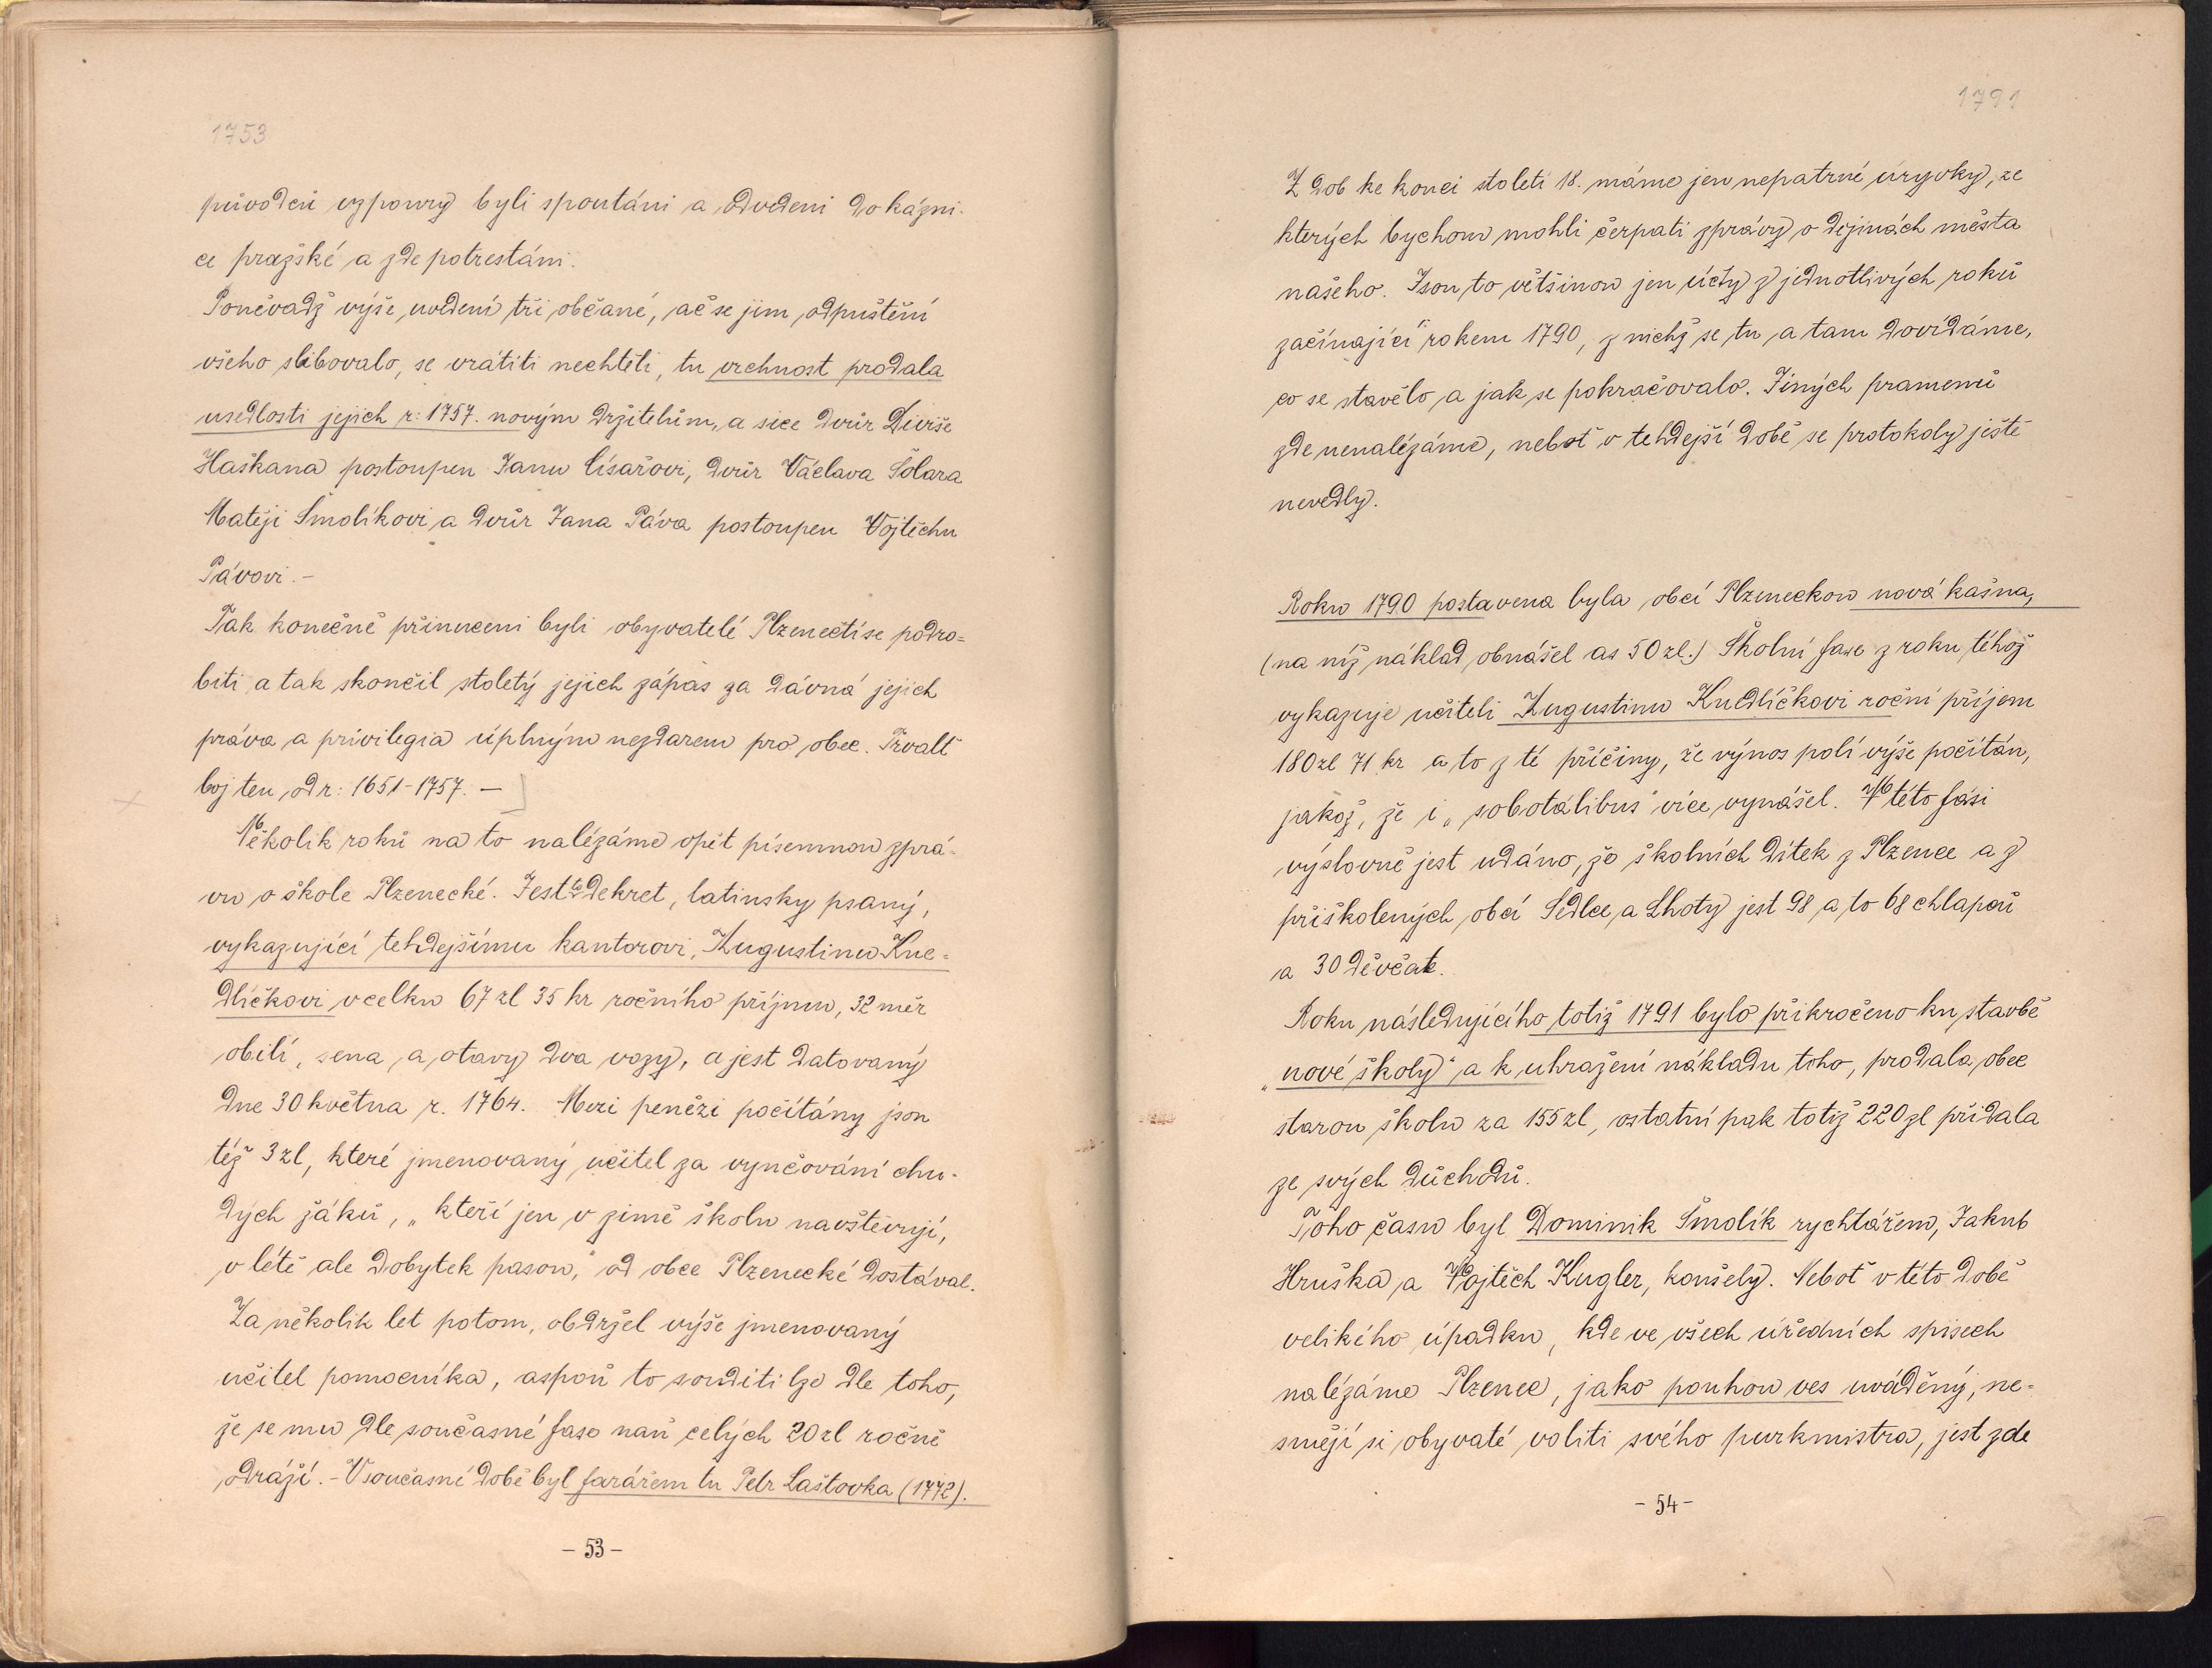 1753
původců vzpoury byli spoutáni a odvedeni do kázni-
ce pražské a zde potrestáni.
Poněvadž výše uvedení tři občané, ač se jim odpuštění
všeho slibovalo, se vrátiti nechtěli, tu vrchnost prodala
usedlosti jejich r: 1757. novým držitelům, a sice dvůr Diviše
Haškana postoupen Janu Císařovi, dvůr Václava Šolara
Matěji Smolíkovi a dvůr Jana Páva postoupen Vojtěchu
Pávovi. –
Tak konečně přinuceni byli obyvatelé Plzenečtí se podro=
biti a tak skončil stoletý jejich zápas za dávná jejich
práva a privilegia úplným nezdarem pro obec. Trvalť
boj ten od r: 1651-1757. –
Několik roků na to nalézáme opět písemnou zprá-
vu o škole Plzenecké. Jest to dekret, latinsky psaný,
vykazující tehdejšímu kantorovi, Augustinu Kne=
dlíčkovi v celku 67 zl 35 kr ročního příjmu, 32 měr
obilí, sena a otavy dva vozy, a jest datovaný
dne 30 května r. 1764. Mezi penězi počítány jsou
též 3 zl, které jmenovaný učitel za vyučování chu-
dých žáků, „kteří jen v zimě školu navštěvují,
v létě ale dobytek pasou," od obce Plzenecké dostával.
Za několik let potom, obdržel výše jmenovaný
učitel pomocníka, aspoň to souditi lze dle toho,
že se mu dle současné fase naň celých 20 zl ročně
odráží. – V současné době byl farářem tu Petr Laštovka (1772).
– 53 –
1791
Z dob ke konci století 18. máme jen nepatrné úryvky, ze
kterých bychom mohli čerpati zprávy o dějinách města
našeho. Jsou to většinou jen účty z jednotlivých roků
začínající rokem 1790, z nichž se tu a tam dovídáme,
co se stavělo a jak se pokračovalo. Jiných pramenů
zde nenalézáme, neboť v tehdejší době se protokoly ještě
nevedly.
Roku 1790 postavena byla obcí Plzeneckou nová kašna,
(na níž náklad obnášel as 50 zl.) Školní fase z roku téhož
vykazuje učiteli Augustinu Knedlíčkovi roční příjem
180 zl 71 kr a to z té příčiny, že výnos polí výše počítán,
jakož, že i „sobotálibus" více vynášel. V této fási
výslovně jest udáno, že školních dítek z Plzence a z
přiškolených obcí Sedlce a Lhoty jest 98 a to 68 chlapců
a 30 děvčat.
Roku následujícího totiž 1791 bylo přikročeno ku stavbě
„nové školy" a k uhražení nákladu toho, prodala obec
starou školu za 155 zl, ostatní pak totiž 220 zl přidala
ze svých důchodů.
Toho času byl Dominik Smolík rychtářem, Jakub
Hruška a Vojtěch Kugler, konšely. Neboť v této době
velikého úpadku, kde ve všech úředních spisech
nalézáme Plzenec, jako pouhou ves uváděný, ne=
smějí si obyvaté voliti svého purkmistra, jest zde
– 54 –